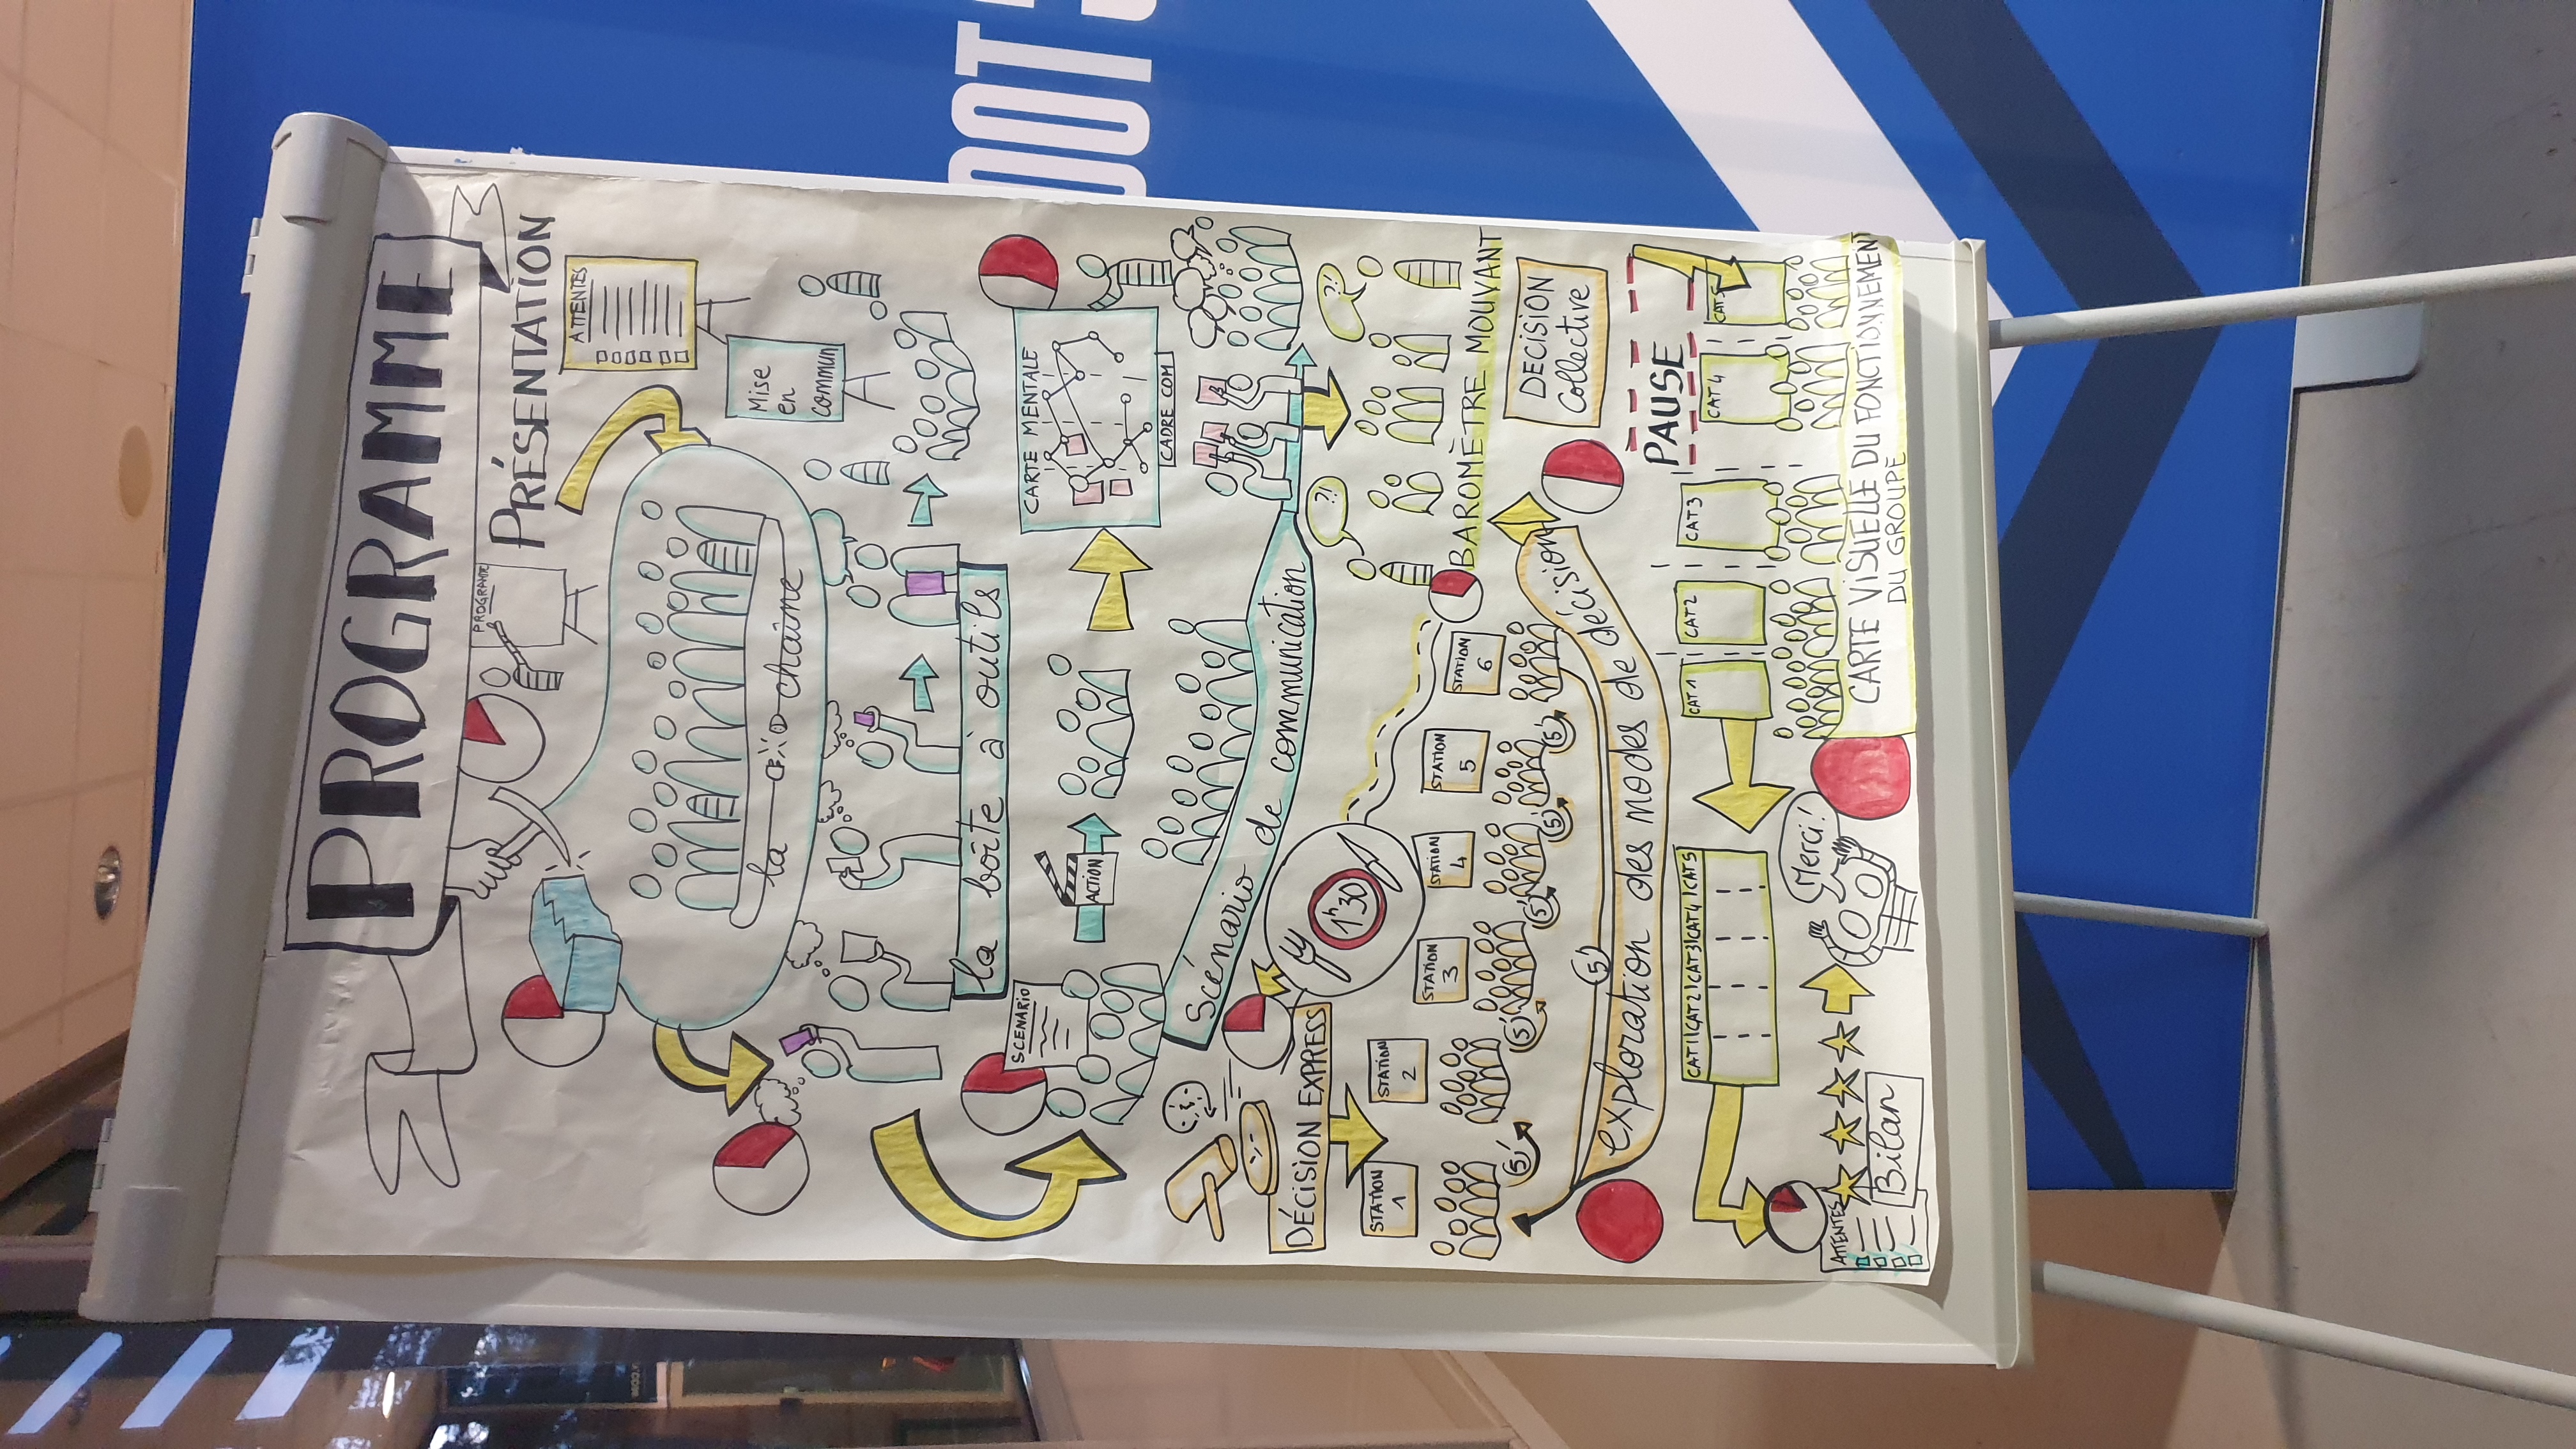 PROGRAMME
PROGRAMME
PRÉSENTATION
ATTENTES
la chaîne
Mise
en
commun
la boîte à outils
SCENARIO
ACTION
CARTE MENTALE
CADRE COM
Scénario de communication
DÉCISION EXPRESS
1h30
?!
?!
BAROMÈTRE MOUVANT
STATION
1
STATION
2
STATION
3
STATION
4
STATION
5
STATION
6
5'
5'
5'
5'
5'
5'
exploration des modes de décision
DECISION
Collective
PAUSE
CAT1
CAT2
CAT3
CAT4
CAT5
CARTE VISUELLE DU FONCTIONNEMENT
DU GROUPE
CAT1 CAT2 CAT3 CAT4 CAT5
ATTENTES
Bilan
Merci!
OOT